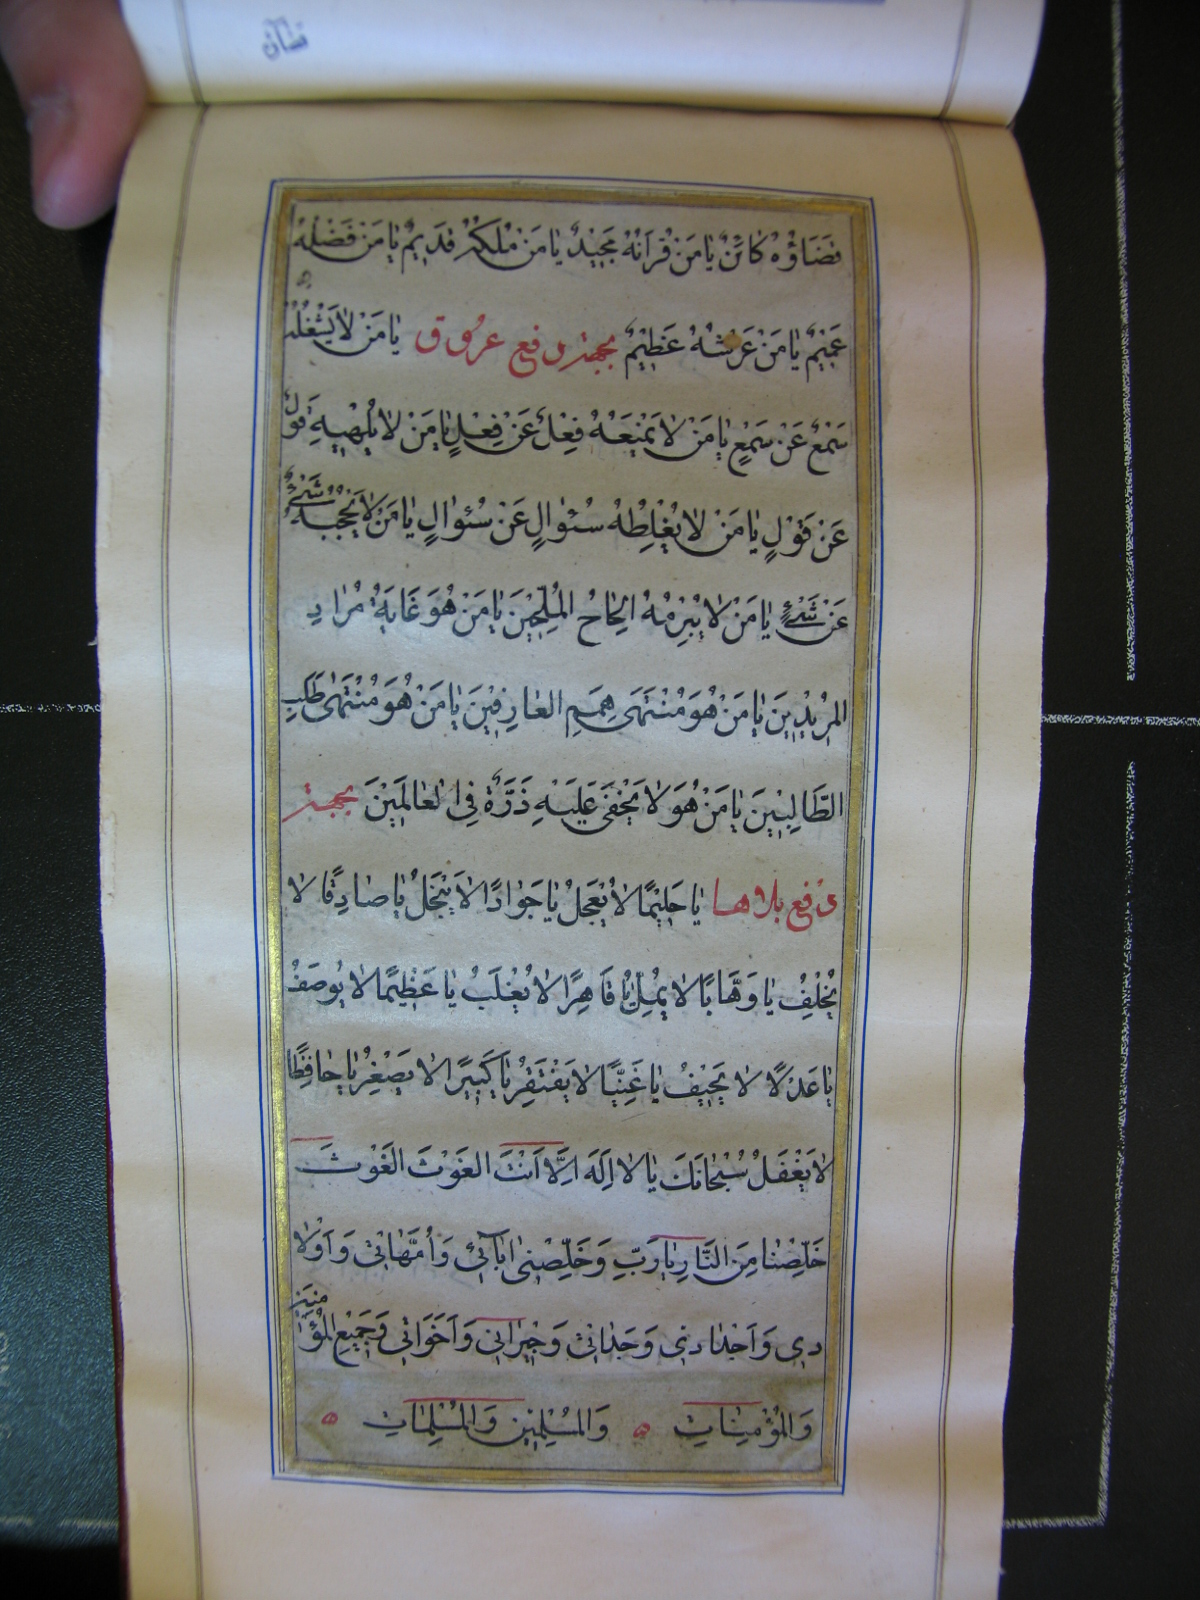 قَضَاؤُهُ كَائِنٌ يَا مَنْ قُرْآنُهُ مَجِيدٌ يَا مَنْ مُلْكُهُ قَدِيمٌ يَا مَنْ فَضْلُهُ
عَمِيمٌ يَا مَنْ عَرْشُهُ عَظِيمٌ بجهة دفع يَا مَنْ لَا يَشْغَلُهُ
سَمْعٌ عَنْ سَمْعٍ يَا مَنْ لَا يَمْنَعُهُ فِعْلٌ عَنْ فِعْلٍ يَا مَنْ لَا يُلْهِيهِ قَوْلٌ
عَنْ قَوْلٍ يَا مَنْ لَا يُغْلِطُهُ سُئْوَالٍ عَنْ سُئْوَالٍ يَا مَنْ لَا يَحْجُبُهُ شَيْءٌ
عَنْ شَيْءٍ يَا مَنْ لَا يُبْرِمُهُ اِلْحَاحُ الْمُلِحِّينَ يَا مَنْ هُوَ غَايَةُ مُرَادِ
الْمُرِيْدِينَ يَا مَنْ هُوَ مُنْتَهَى هِمَمِ الْعَارِفِيْنَ يَا مَنْ هُوَ مُنْتَهَى طَلَبِ
الطَّالِبِيْنَ يَا مَنْ هُوَ لَا يَخْفَى عَلَيْهِ ذَرَّةٌ فِي الْعَالَمِيْنَ بجهة
دفع بلاها يَا حَلِيْمًا لَا يَعْجَلُ يَا جَوَادًا لَا يَبْخَلُ يَا صَادِقًا لَا
يُخْلِفُ يَا وَهَّابًا لَا يَمِلُّ يَا قَاهِرًا لَا يُغْلَبُ يَا عَظِيْمًا لَا يُوصَفُ
يَا عَدْلًا لَا يَحِيْفُ يَا غَنِيًّا لَا يَفْتَقِرُ يَا كَبِيْرًا لَا يَصْغِرُ يَا حَافِظًا
لَا يَغْفَلُ سُبْحَانَكَ يَا لَا اِلَهَ اِلَّا اَنْتَ الْغَوْثَ الْغَوْثَ
خَلِّصْنَا مِنَ النَّارِ يَا رَبِّ وَخَلِّصْنِي اٰبَآئِي وَاُمَّهَاتِي وَاَوْلَا
دِي وَاَجْدَادِي وَجَدَّاتِي وَجِيْرَانِي وَاَخَوَاتِي وَجَمِيْعِ الْمُؤْمِنِيْنَ
وَالْمُؤْمِنَاتِ وَالْمُسْلِمِيْنَ وَالْمُسْلِمَاتِ